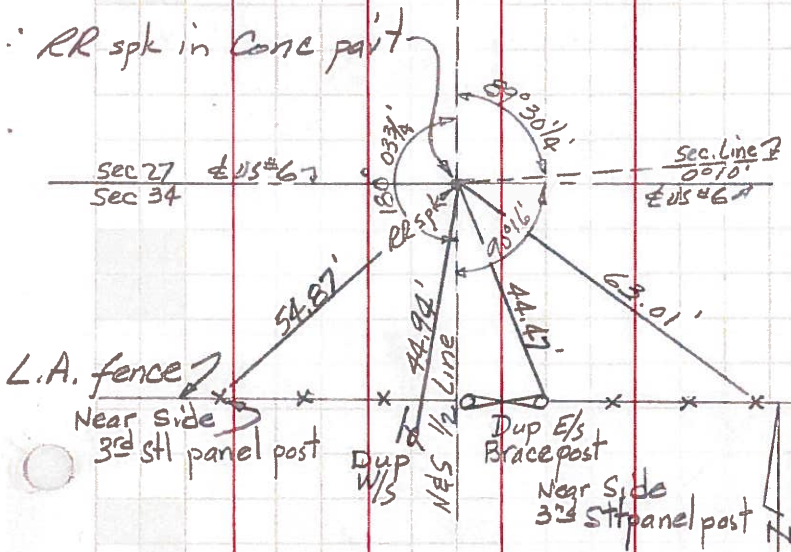 RR spk in Conc pav't
89°30¼'
180°03¾'
Sec 27 ℄ US #6
Sec 34
Sec. Line
0°10'
℄ US #6
RR spk
90°16'
54.87'
44.94'
44.47'
63.01'
N&S 1/2 Line
L.A. fence
Near Side
3rd Stl panel post
Dup
W/S
Dup E/s
Brace post
Near Side
3rd Stl panel post
N